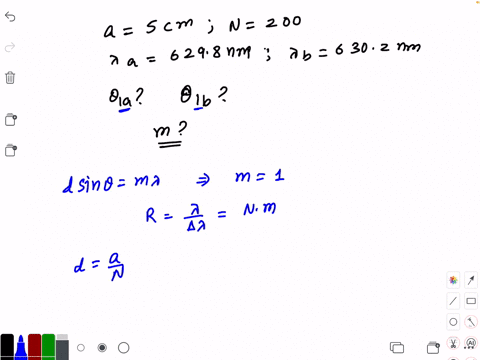 a = 5 cm ; N = 200
λa = 629.8 nm ; λb = 630.2 nm
θ1a? θ1b?
m?
d sinθ = mλ ⇒ m = 1
R = λ/Δλ = N·m
d = a/N